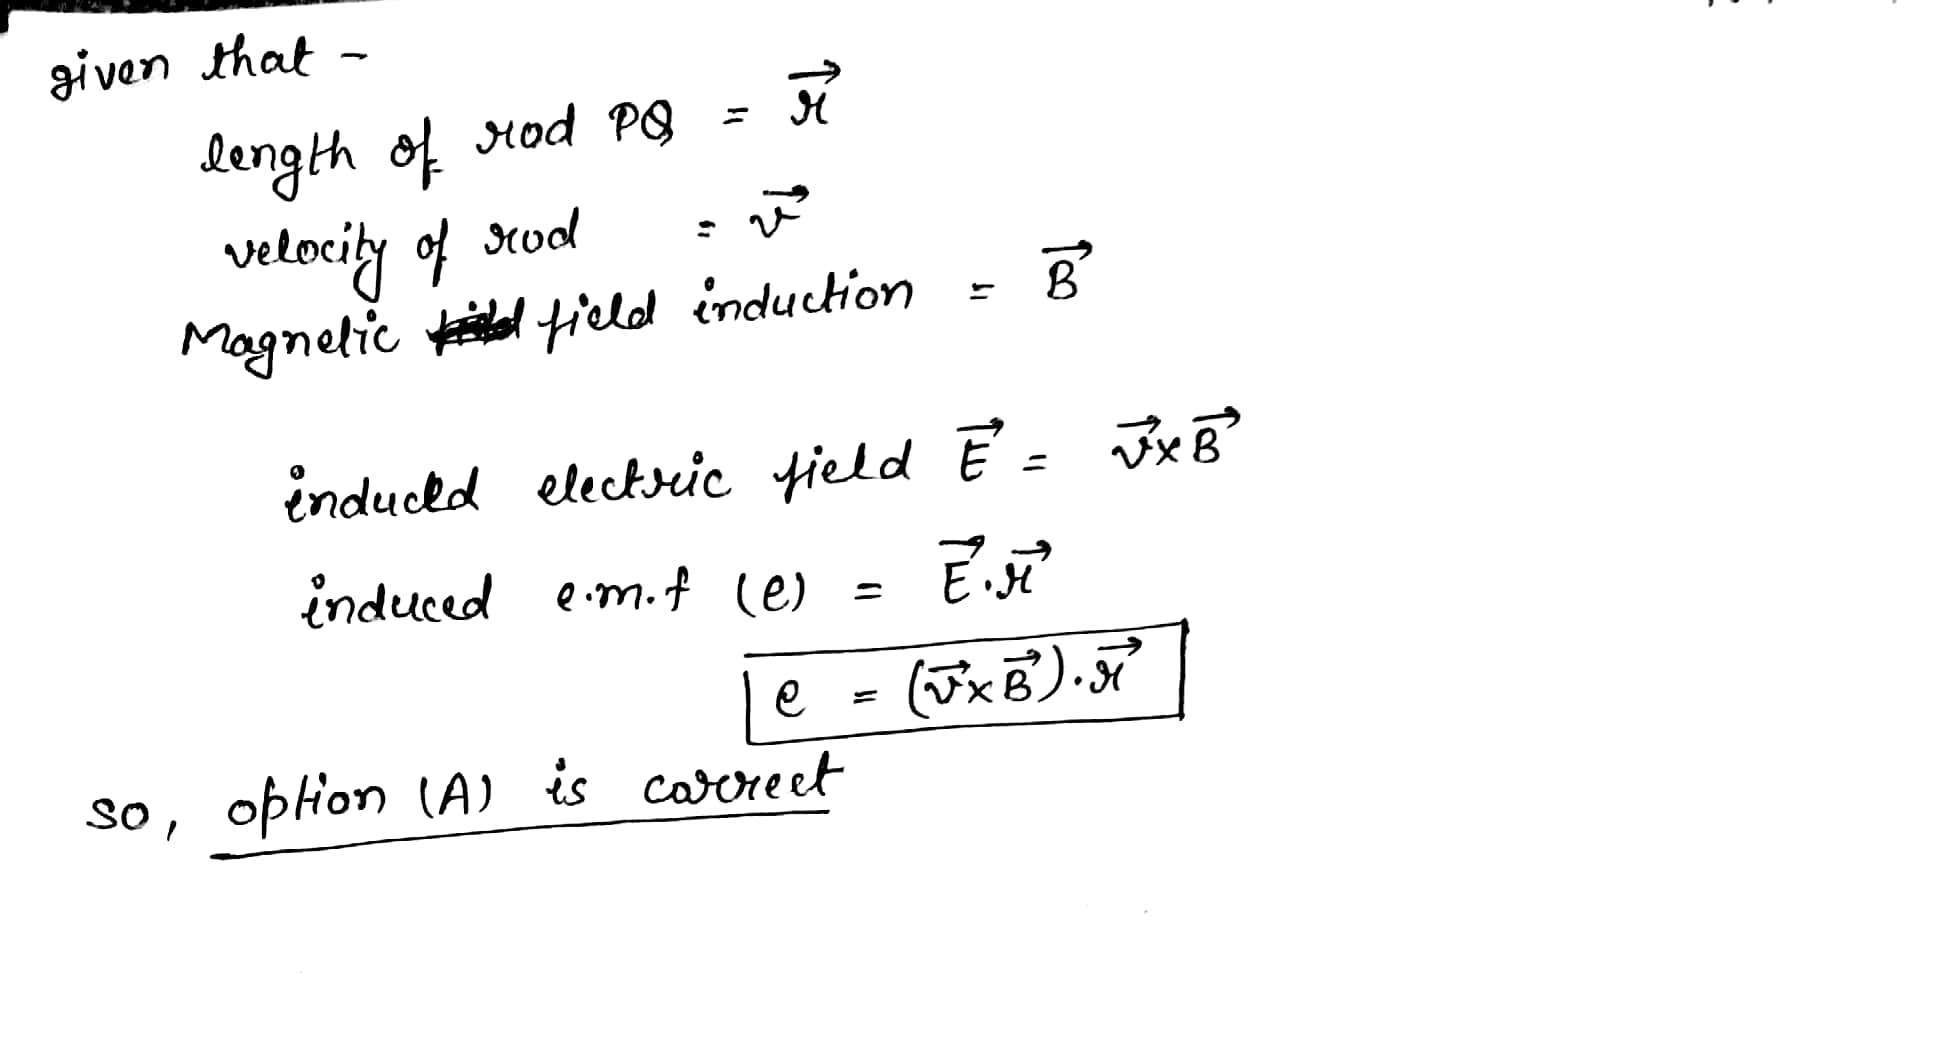 given that -
length of rod PQ = r⃗
velocity of rod = v⃗
Magnetic field induction = B⃗
induced electric field E⃗ = v⃗×B⃗
induced e.m.f (e) = E⃗.r⃗
e = (v⃗×B⃗).r⃗
so, option (A) is correct